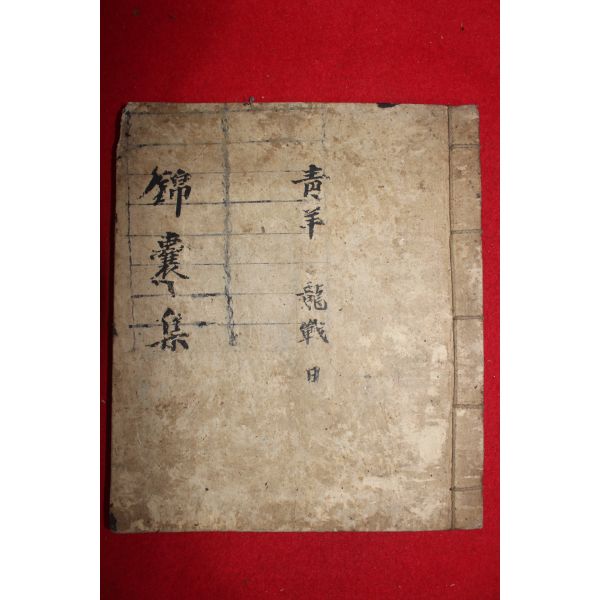 青羊 龍戰 日
錦囊集